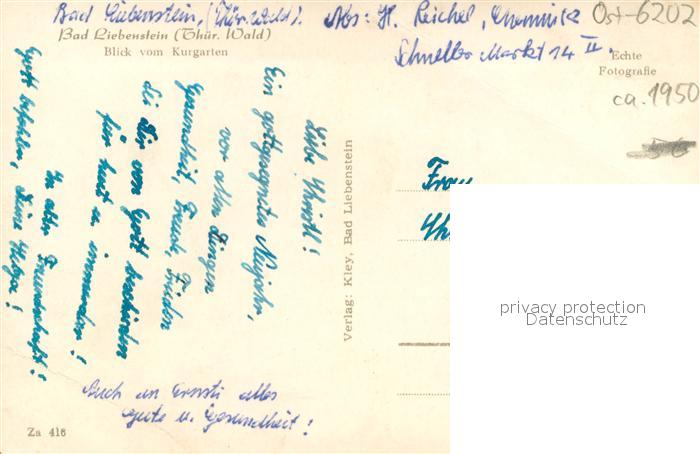 Bad Liebenstein, (Thür. Wald). Abs: H. Reichel, Chemnitz
Schneller Markt 14 II.
Ost-6202
Bad Liebenstein (Thür. Wald)
Blick vom Kurgarten
Echte
Fotografie
ca. 1950
Liebe Christl!
Ein gottgesegnetes Neujahr,
vor allen Dingen
Gesundheit, Freude, Frieden
die Dir von Gott beschieden
für heut u. immerdar!
In alter Freundschaft!
Gott befohlen, Deine Helga!
Verlag: Kley, Bad Liebenstein
Frau
Ch
privacy protection
Datenschutz
Auch an Ernsti alles
Gute u. Gesundheit!
Za 416